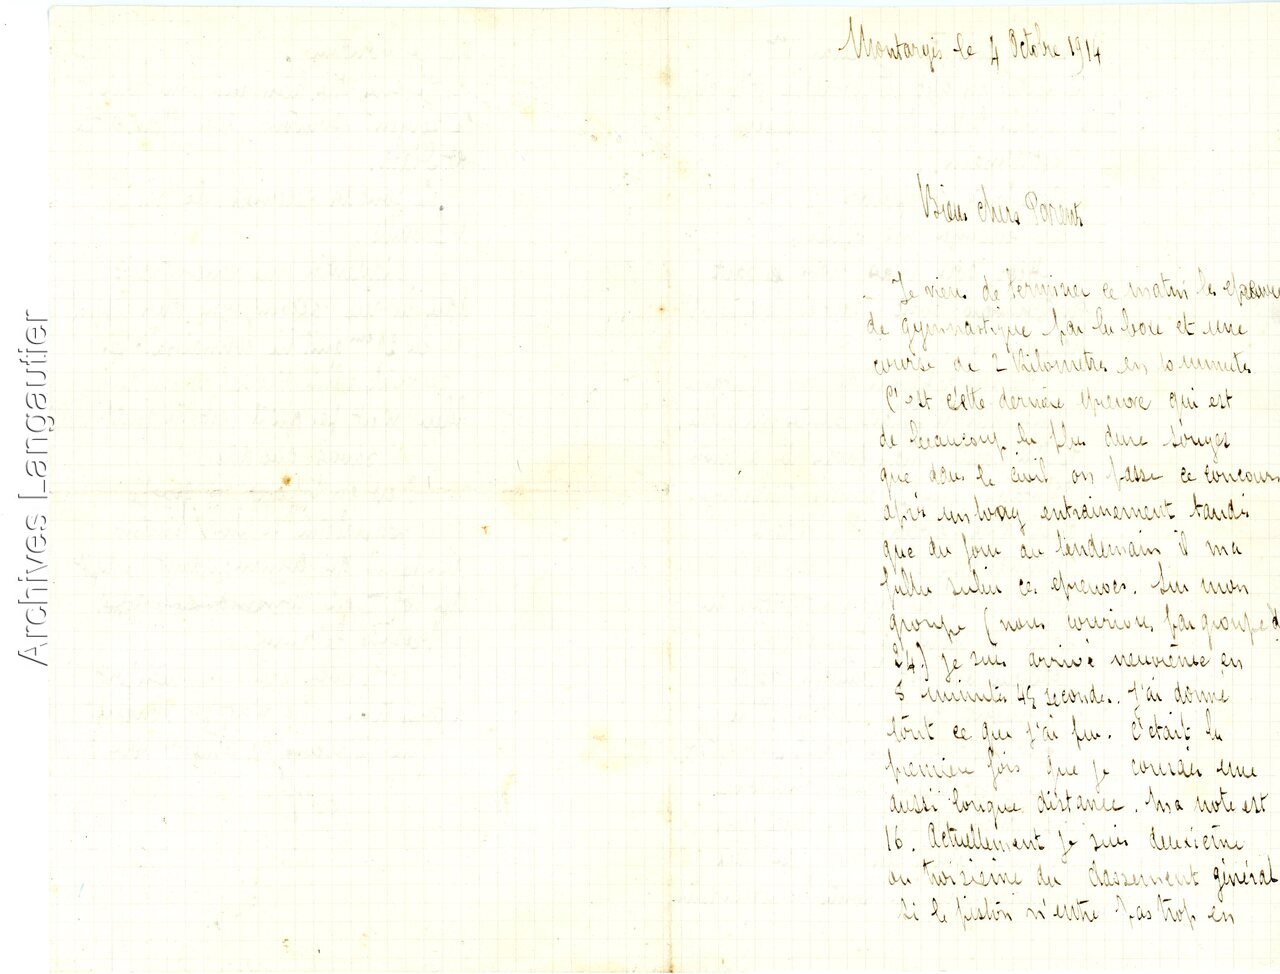 Archives Langautier
Montargis le 4 Octobre 1914
Biens chers Parents
Je viens de terminer ce matin les epreuves
de gymnastique par la boxe et une
course de 2 Kilometres en 10 minutes
C'est cette dernière epreuve qui est
de beaucoup la plus dure songez
que dans le civil on passe ce concours
après un long entrainement tandis
que du jour au lendemain il ma
fallu subir ces epreuves. Sur mon
groupe (nous courions par groupe de
24) je suis arrivé neuvième en
8 minutes 45 secondes. J'ai donné
tout ce que j'ai pu. C'etait la
première fois que je courais une
aussi longue distance. Ma note est
16. Actuellement je suis deuxième
ou troisième du classement général
si le piston n'entre pas trop en